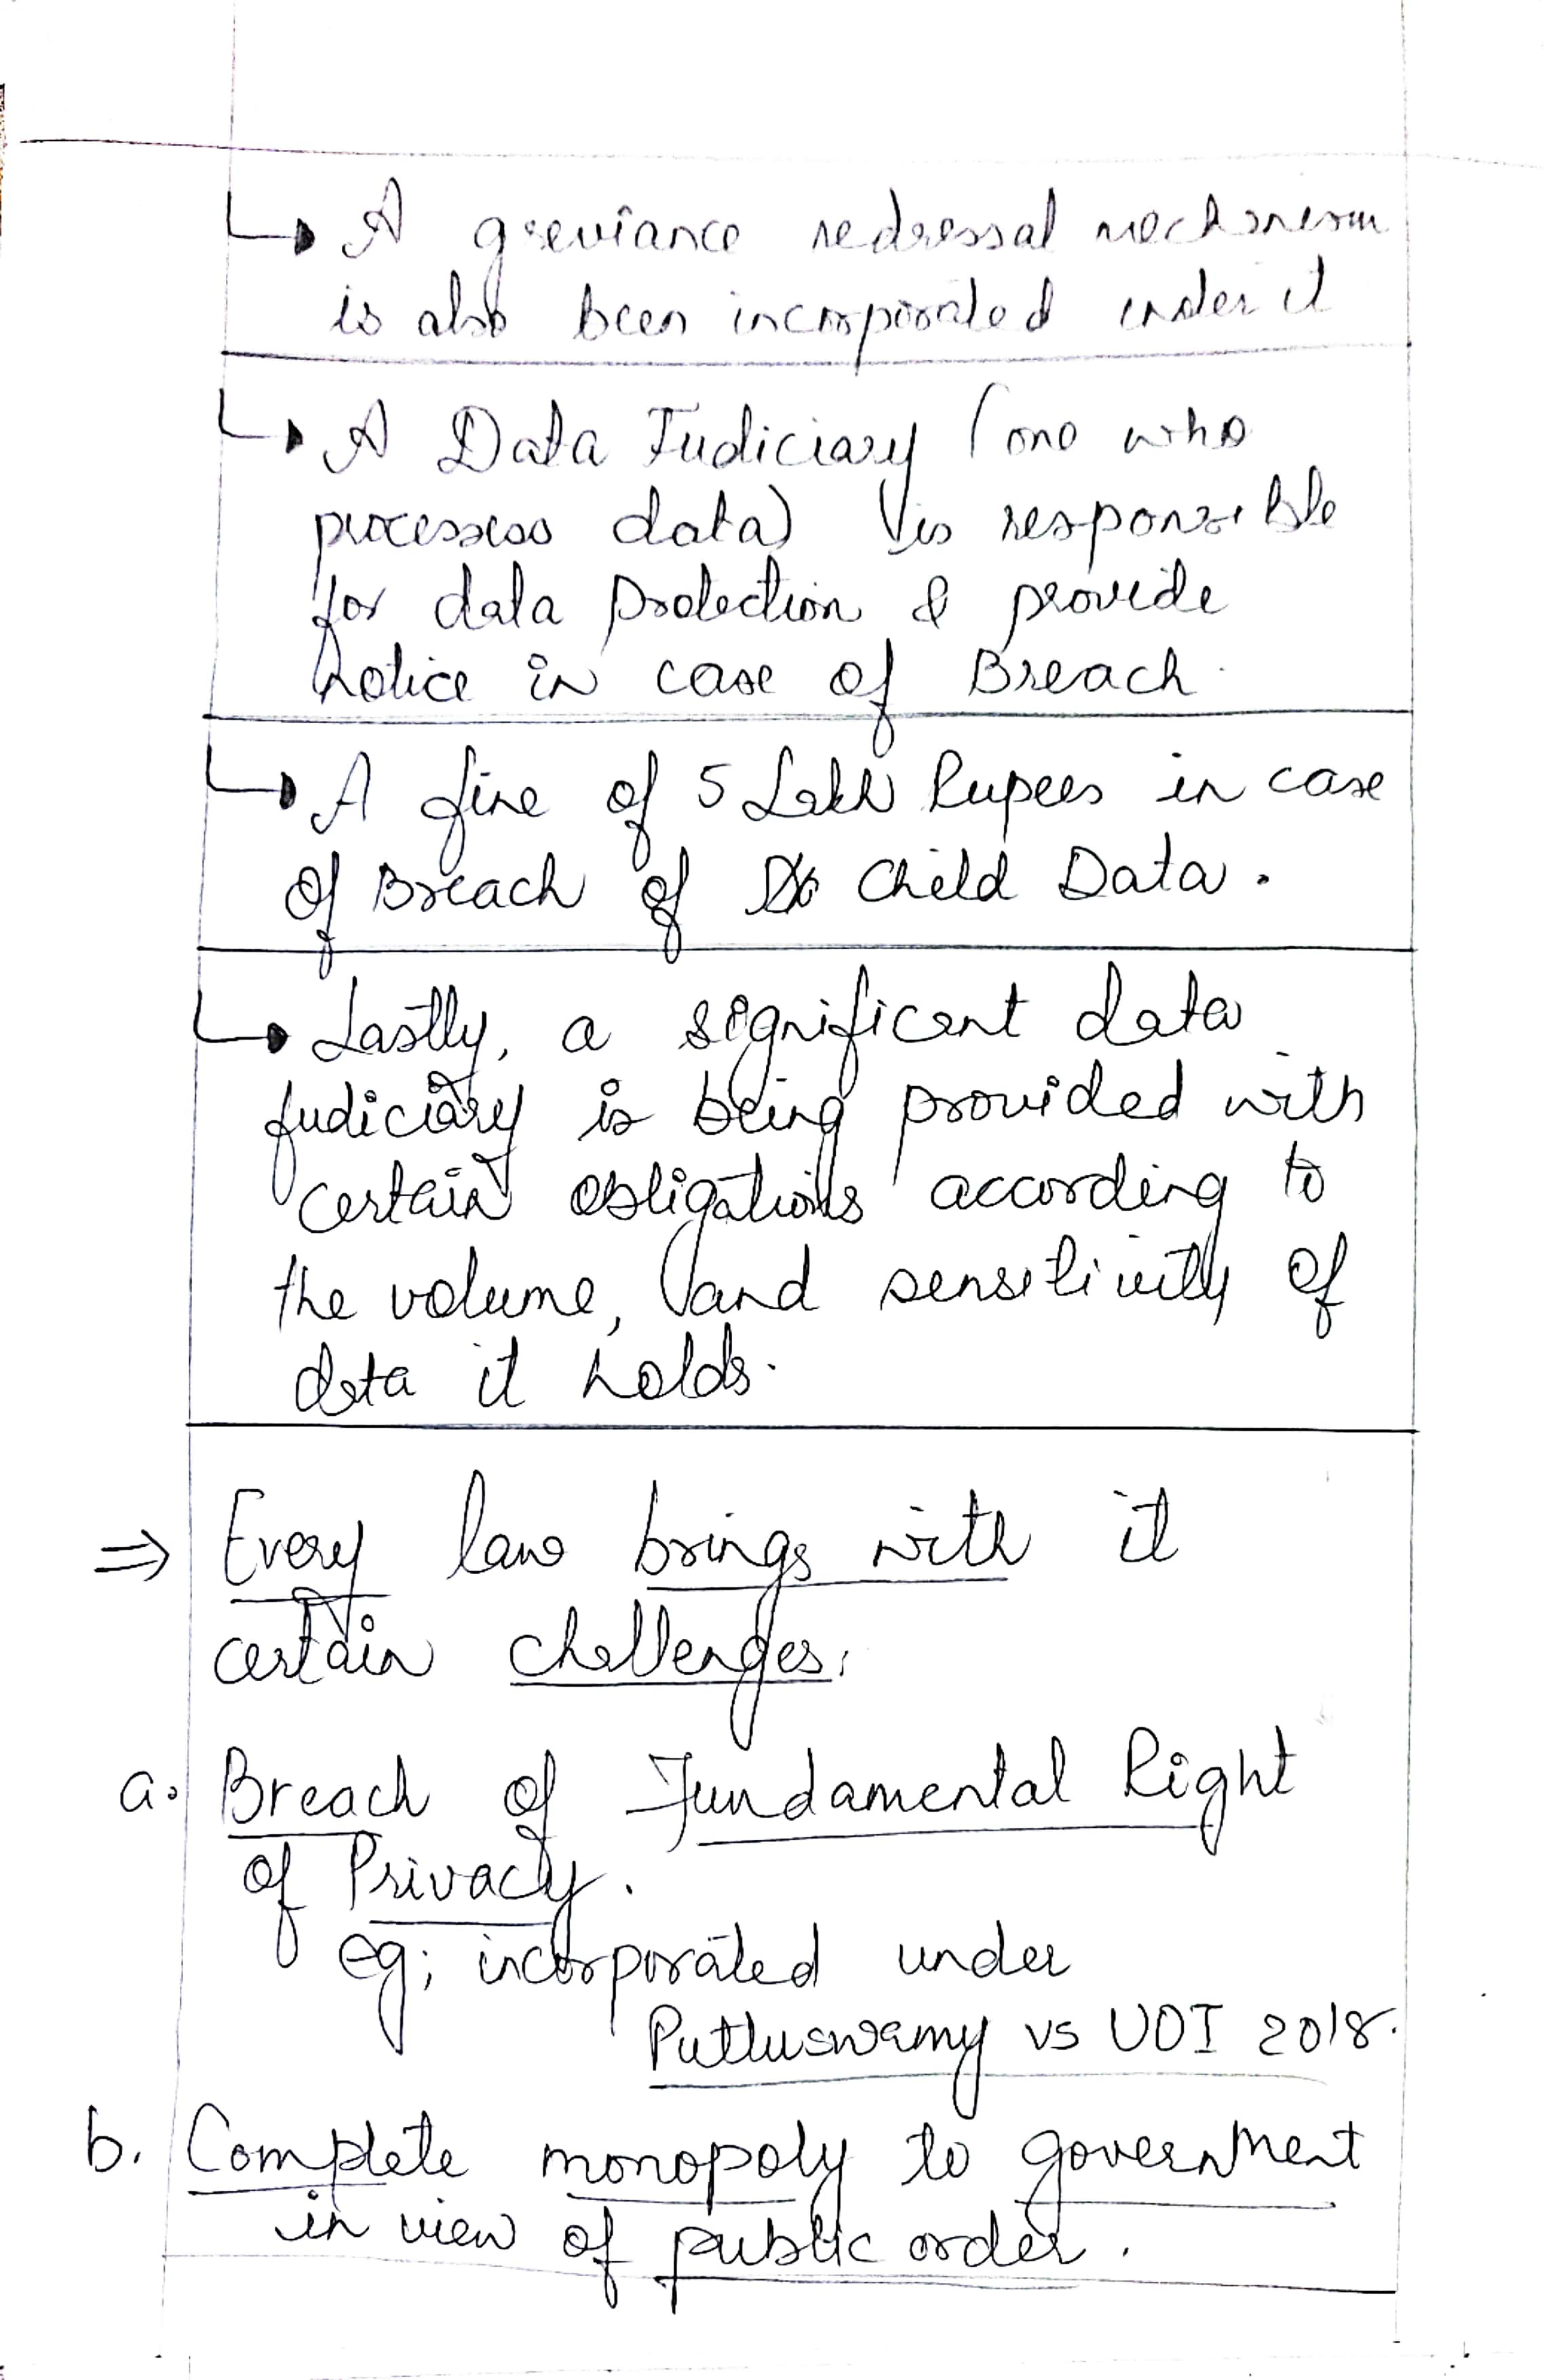 ↳ A greviance redressal mechanism
is also been incorporated under it
↳ A Data Fudiciary (one who
processess data) is responsible
for data protection & provide
notice in case of Breach.
↳ A fine of 5 Lakh Rupees in case
of Breach of Child Data.
↳ Lastly, a significant data
fudiciary is being provided with
certain obligations according to
the volume, and sensitivity of
data it holds.
⇒ Every law brings with it
certain challenges.
a. Breach of Fundamental Right
of Privacy.
eg; incorporated under
Puttuswamy vs UOI 2018.
b. Complete monopoly to government
in view of public order.